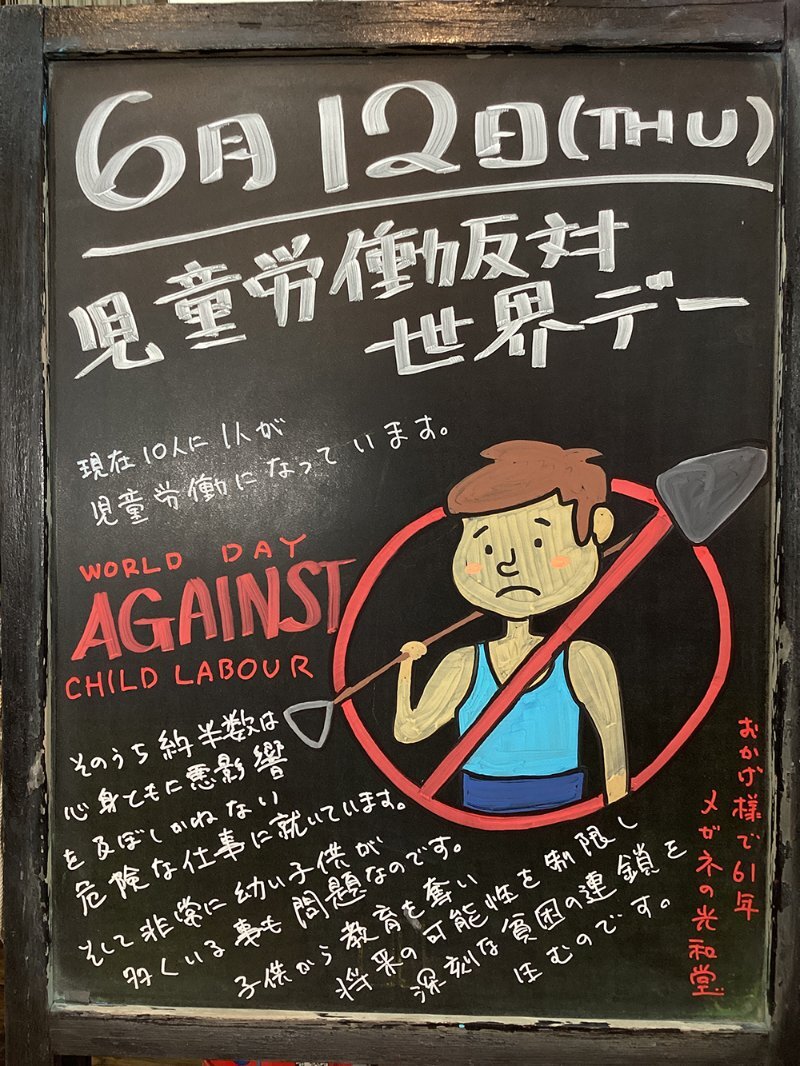 6月12日(THU)
児童労働反対
世界デー
現在10人に1人が
児童労働になっています。
WORLD DAY
AGAINST
CHILD LABOUR
そのうち約半数は
心身ともに悪影響
を及ぼしかねない
危険な仕事に就いています。
そして非常に幼い子供が
多くいる事も問題なのです。
子供から教育を奪い
将来の可能性を制限し
深刻な貧困の連鎖を
生むのです。
おかげ様で61年
メガネの光和堂